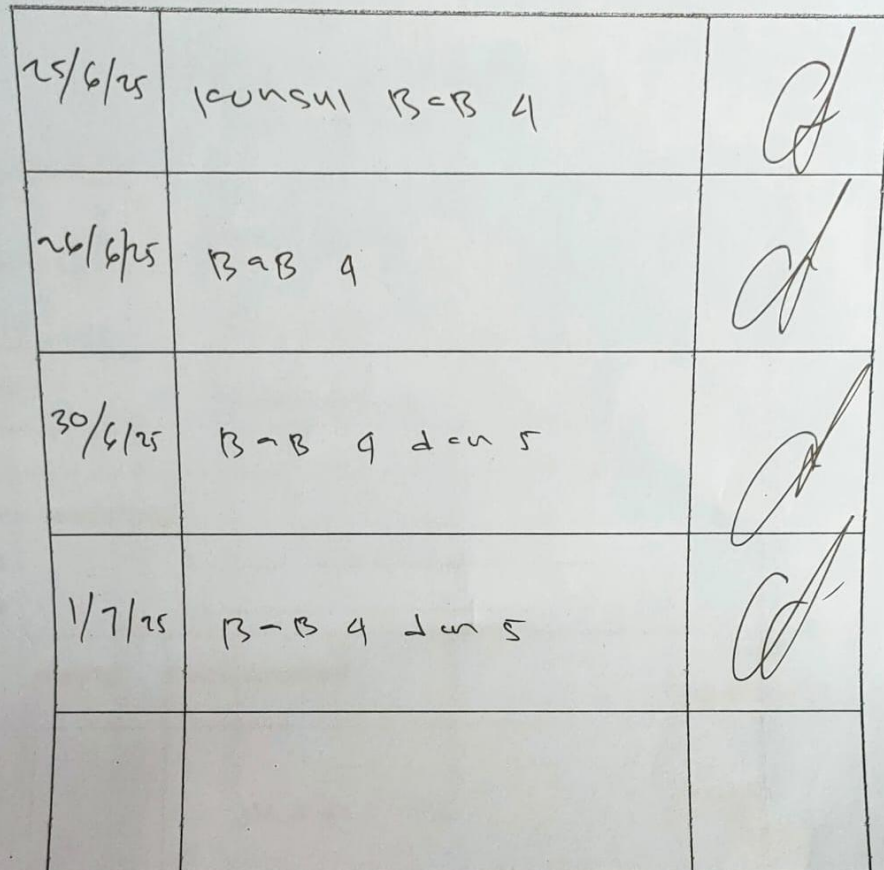 25/6/25 Konsul BaB 4
26/6/25 BaB 4
30/6/25 BaB 4 dan 5
1/7/25 BaB 4 dan 5